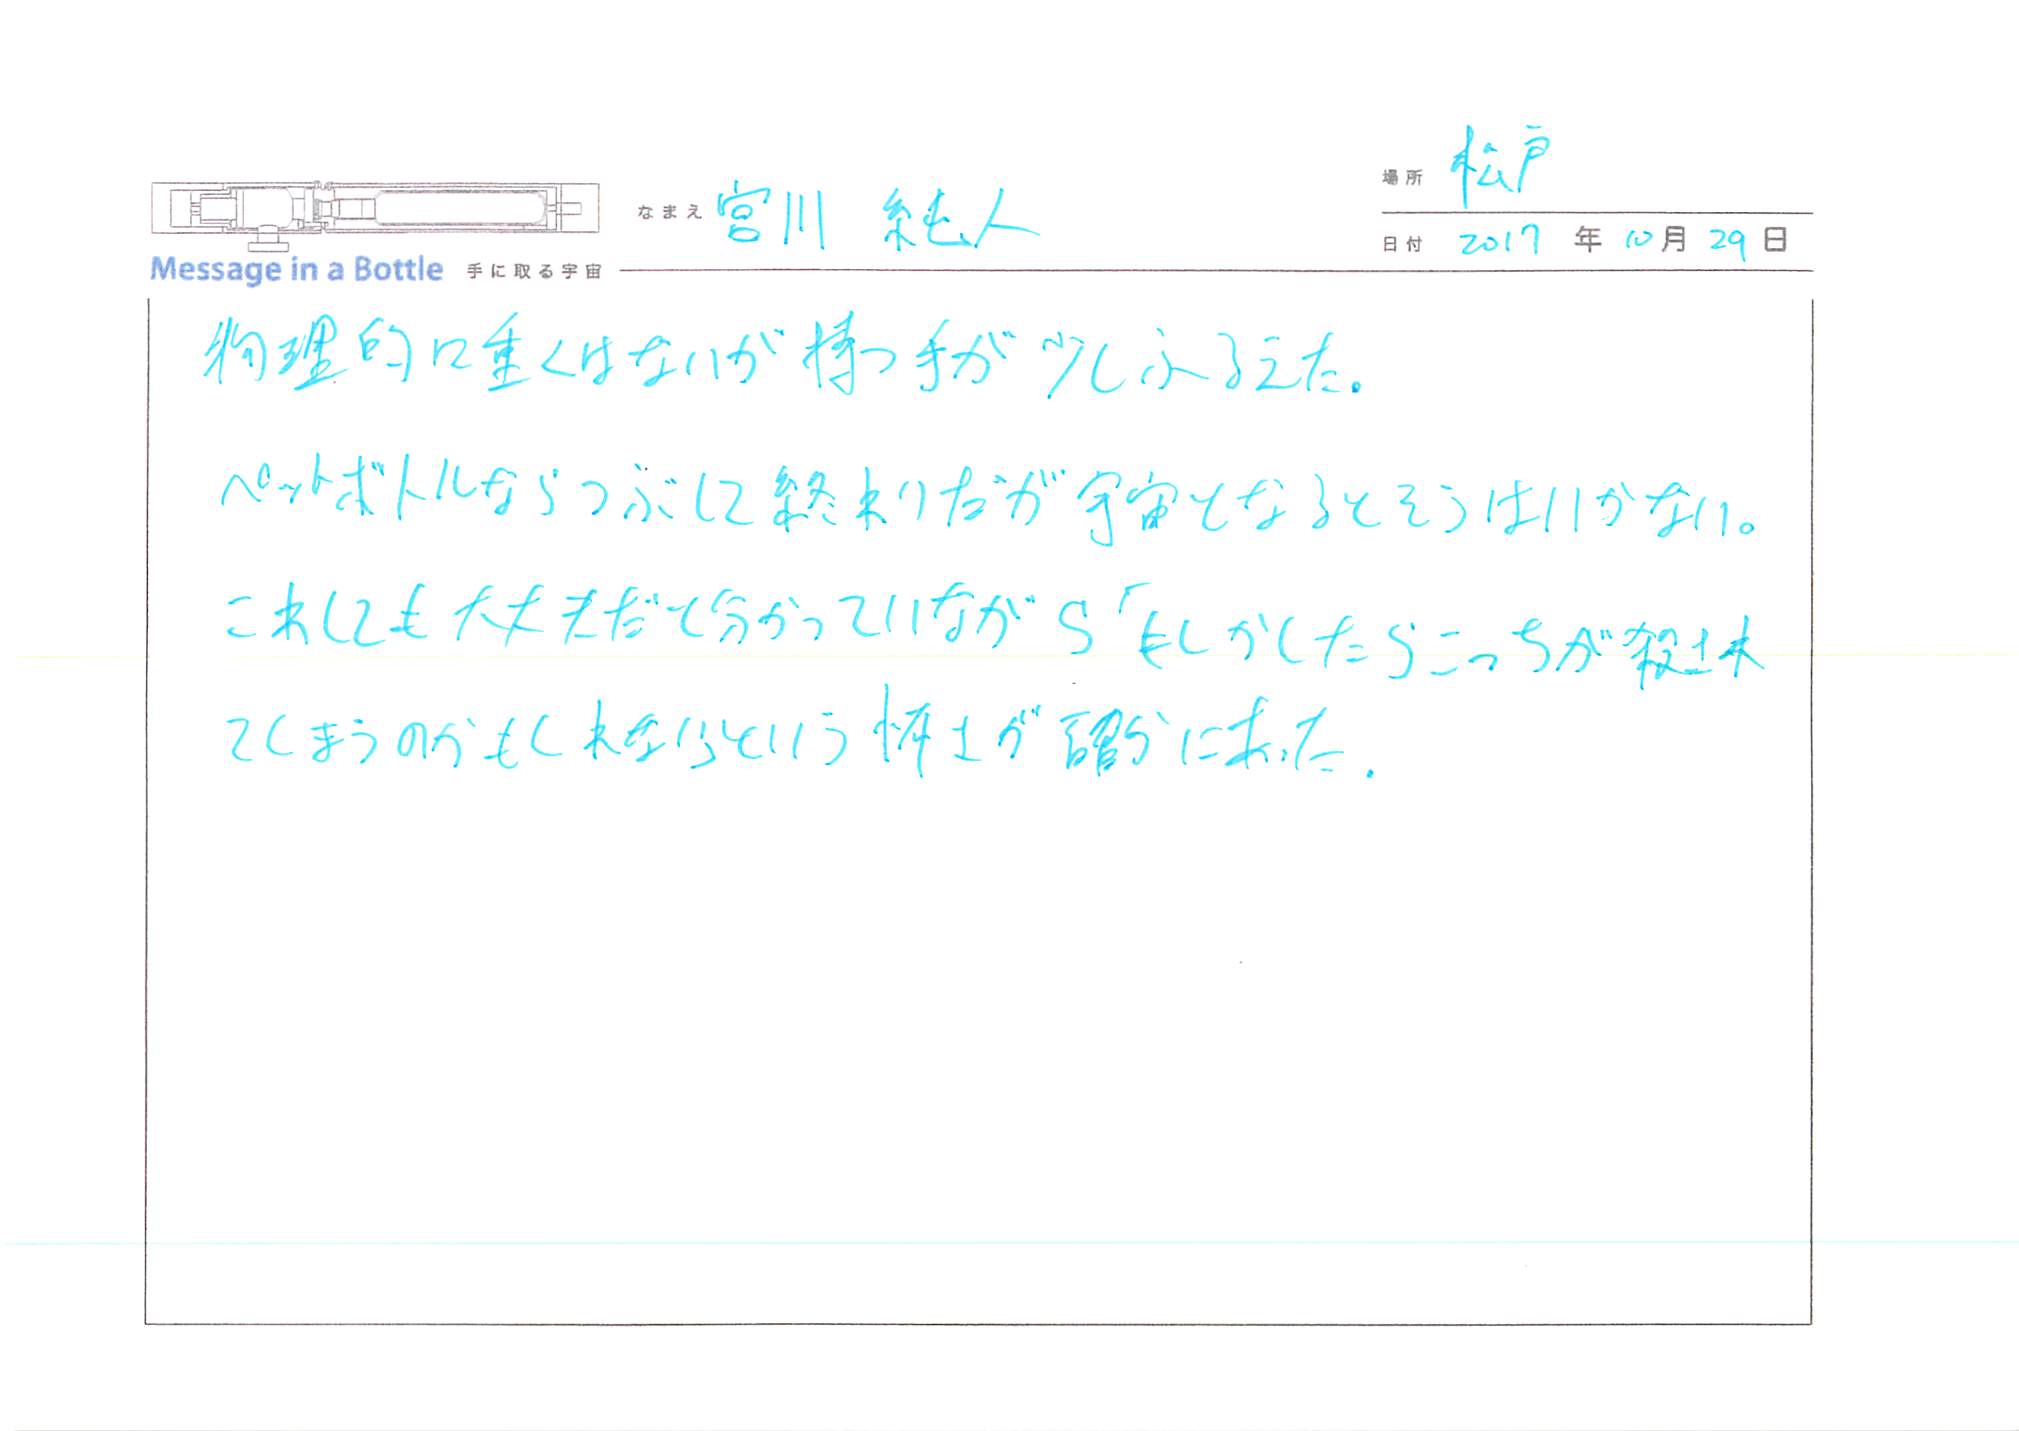 場所 松戸
なまえ 宮川 純人
日付 2017 年 10 月 29 日
Message in a Bottle 手に取る宇宙
物理的に重くはないが持つ手が少しふるえた。
ペットボトルならつぶして終わりだが宇宙となるとそうはいかない。
これしても大丈夫だて分かっていながら「もしかしたらこっちが殺され
てしまうのかもしれない」という怖さが 分にあった.